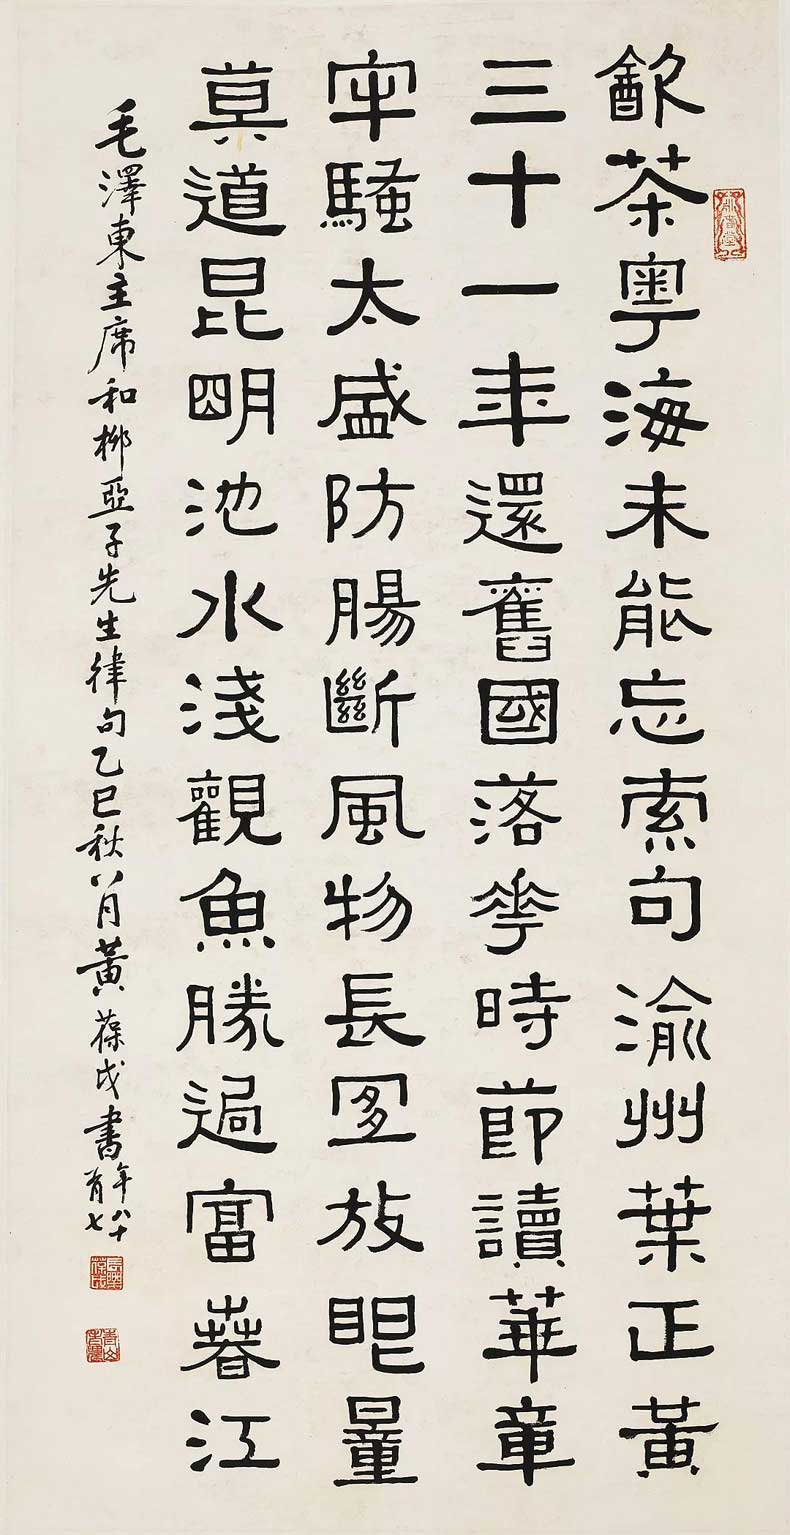 㱃茶粵海未能忘索句渝州葉正黃
三十一年還舊國落花時節讀華章
牢騷太盛防腸斷風物長宜放眼量
莫道昆明池水淺觀魚勝過富春江
毛澤東主席和柳亞子先生律句乙巳秋八月黃葆戉書年八十有七